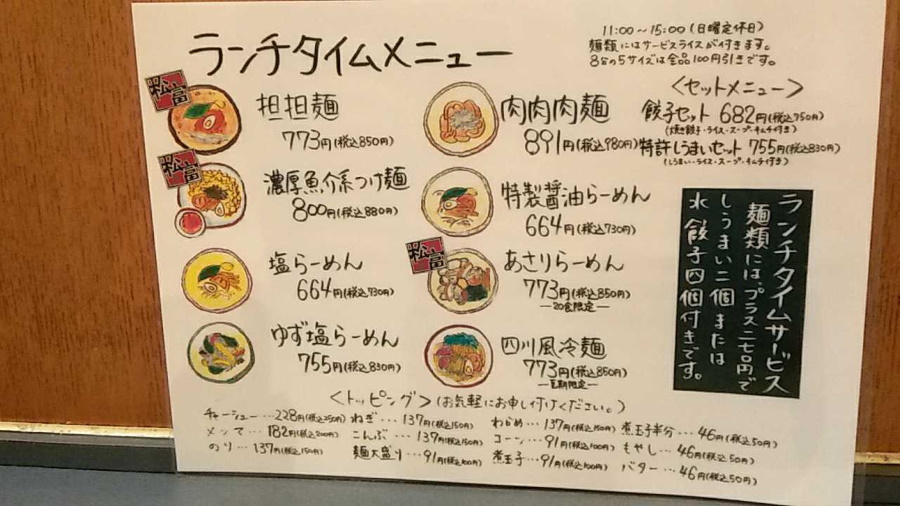 ランチタイムメニュー
11:00〜15:00(日曜定休日)
麺類にはサービスライスが付きます。
8分の5サイズは全品100円引きです。
松富
担担麺
773円(税込850円)
松富
濃厚魚介系つけ麺
800円(税込880円)
塩らーめん
664円(税込730円)
ゆず塩らーめん
755円(税込830円)
肉肉肉麺
891円(税込980円)
特製醤油らーめん
664円(税込730円)
松富
あさりらーめん
773円(税込850円)
―20食限定―
四川風冷麺
773円(税込850円)
―夏期限定―
<セットメニュー>
餃子セット 682円(税込750円)
(焼き餃子・ライス・スープ・キムチ付き)
特許しうまいセット 755円(税込830円)
(しうまい・ライス・スープ・キムチ付き)
ランチタイムサービス
麺類には、プラス二七0円で
しうまい二個または
水餃子四個付きです。
<トッピング>(お気軽にお申し付けください。)
チャーシュー…228円(税込250円) ねぎ…137円(税込150円) わかめ…137円(税込150円) 煮玉子半分…46円(税込50円)
メンマ…182円(税込200円) こんぶ…137円(税込150円) コーン…91円(税込100円) もやし…46円(税込50円)
のり…137円(税込150円) 麺大盛り…91円(税込100円) 煮玉子…91円(税込100円) バター…46円(税込50円)